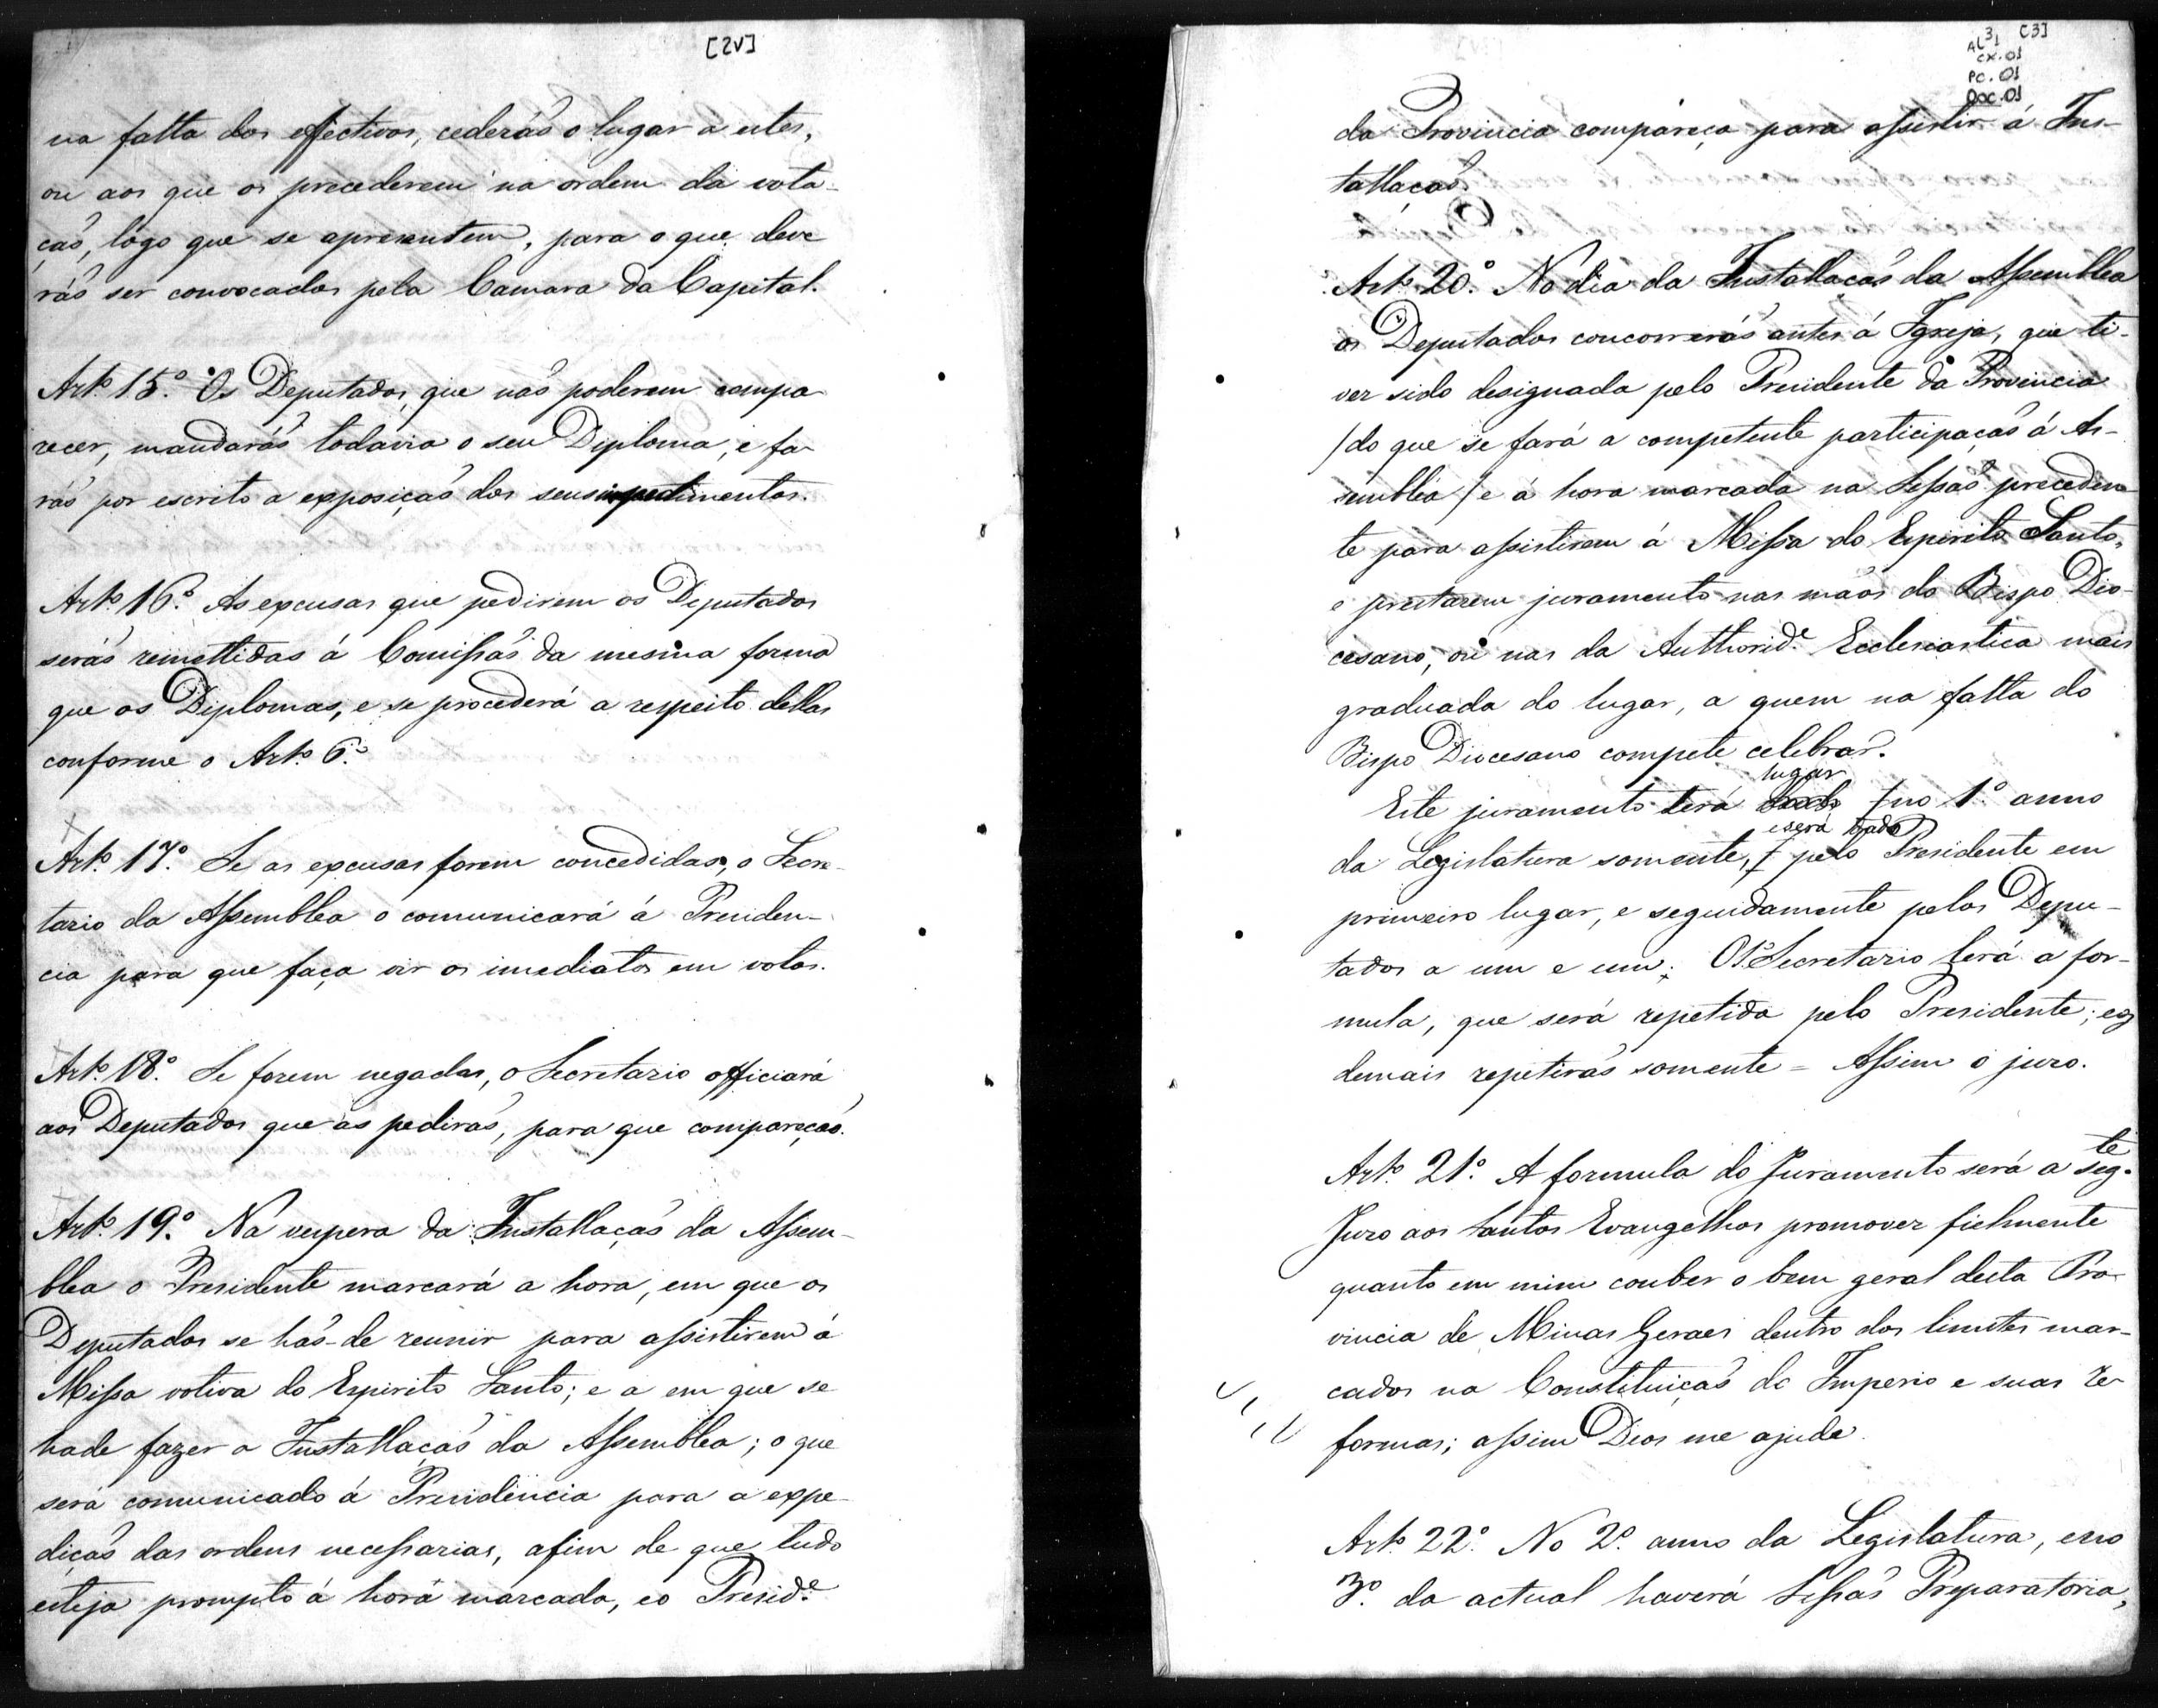 [2v]
na falta dos effectivos, cederáõ o lugar a estes,
ou aos que os precederem na ordem da vota-
çaõ, logo que se apresentem, para o que deve
ráõ ser convocados pela Camara da Capital.
Artº 15º. Os Deputados, que naõ poderem compa
recer, mandaráõ todavia o seu Diploma, e fa-
ráõ por escrito a exposiçaõ dos seus impedimentos.
Artº 16º. As excusas que pedirem os Deputados
seráõ remettidas á Comissaõ da mesma forma
que os Diplomas, e se procederá a respeito dellas
conforme o Artº 6º.
Artº 17º. Se as excusas forem concedidas, o Secre-
tario da Assemblea o comunicará á Presiden-
cia para que faça vir os imediatos em votos.
Artº 18º. Se forem negadas, o Secretario officiará
aos Deputados que as pediráõ, para que compareçaõ.
Artº 19º. Na vespera da Installaçaõ da Assem-
blea o Presidente marcará a hora, em que os
Deputados se haõ-de reunir para assistirem á
Missa votiva do Espirito Santo; e a em que se
hade fazer a Installaçaõ da Assemblea; o que
será comunicado á Presidencia para a expe-
diçaõ das ordens necessarias, afim de que tudo
esteja prompto á hora marcada, eo Preside
[3]
AL31
CX.01
PC.01
DOC.01
da Provincia compareça para assistir á Ins-
tallaçaõ.
Artº 20º. No dia da Installaçaõ da Assemblea
os Deputados concorreráõ antes á Igreja, que ti-
ver sido designada pelo Presidente da Provincia
/do que se fará a competente participaçaõ á As-
sembléa/ e á hora marcada na Sessaõ preceden-
te para assistirem á Missa do Espirito Santo,
e prestarem juramento nas maõs do Bispo Dio-
cesano, ou nas da Authoride Ecclesiastica mais
graduada do lugar, a quem na falta do
Bispo Diocesano compete celebrar.
lugar
Este juramento terá no 1º anno
e será dado
da Legislatura somente, pelo Presidente em
primeiro lugar, e seguidamente pelos Depu-
tados a um e um. O 1º Secretario lerá a for-
mula, que será repetida pelo Presidente; eos
demais repetiráõ somente = Assim o juro.
Artº 21º. A formula do Juramento será a segte
Juro aos Santos Evangelhos promover fielmente
quanto em mim couber o bem geral desta Pro-
vincia de Minas Geraes dentro dos limites mar-
cados na Constituiçaõ do Imperio e suas re-
formas; assim Deos me ajude.
Artº 22º. No 2º anno da Legislatura, eno
3º da actual haverá Sessaõ Preparatoria,